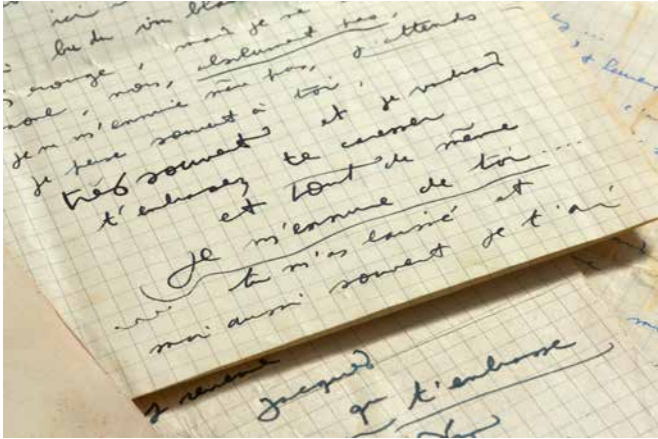 ici
bu du vin bla
rouge, mais je ne
nous, absolument pas,
je ne m'ennuie même pas, j'attends
je pense souvent à toi,
très souvent et je voudrais
t'embrasser te caresser
et tout de même
Je m'ennuie de toi....
tu m'as laissé et
moi aussi souvent je t'ai
Jacques
qui t'embrasse